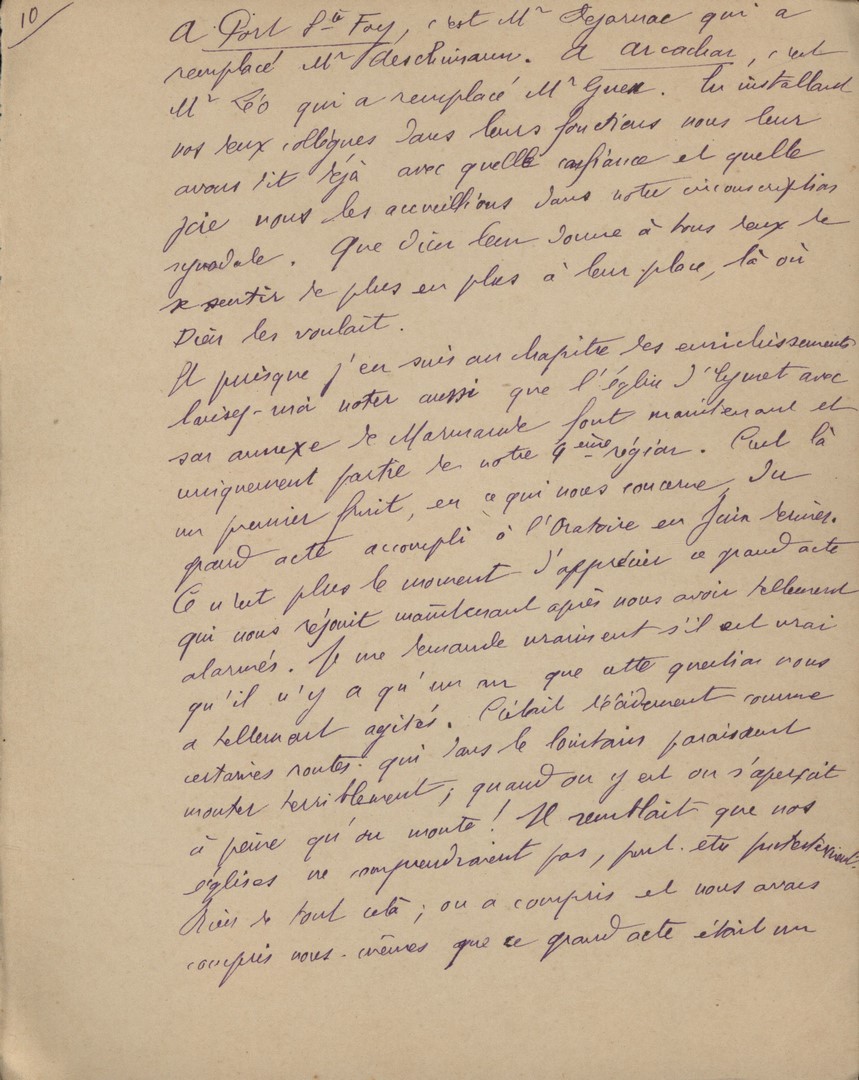 10
A Port Ste Foy, c'est Mr Dejarnac qui a
remplacé Mr deschimann. A arcachon, c'est
Mr Léo qui a remplacé Mr Guex. En installant
nos deux collègues dans leurs fonctions nous leur
avons dit déjà avec quelle confiance et quelle
joie nous les accueillions dans notre circonscription
synodale. Que Dieu leur donne à tous deux de
se sentir de plus en plus à leur place, là où
Dieu les voulait.
Et puisque j'en suis au chapitre des enrichissements
laissez-moi noter aussi que l'église d'Eymet avec
son annexe de Marmande font maintenant et
uniquement partie de notre 9ème région. C'est là
un premier fruit, en ce qui nous concerne, du
grand acte accompli à l'Oratoire en Juin dernier.
Ce n'est plus le moment d'apprécier ce grand acte
qui nous réjouit maintenant après nous avoir tellement
alarmés. Je me demande vraiment s'il est vrai
qu'il n'y a qu'un an que cette question nous
a tellement agités. C'était décidement comme
certaines routes qui dans le lointain paraissent
monter terriblement ; quand on y est on s'aperçoit
à peine qu'on monte ! Il semblait que nos
églises ne comprendraient pas, peut-etre protesteraient.
Rien de tout cela ; on a compris et nous avons
compris nous-mêmes que ce grand acte était un